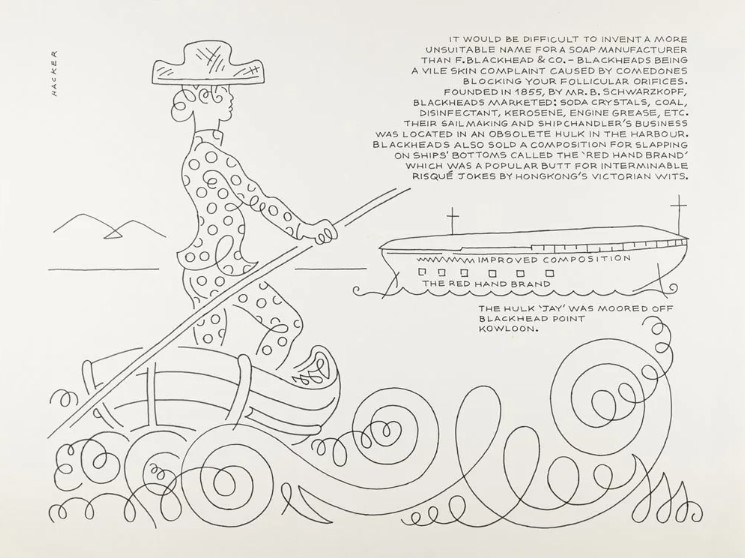 HACKER
IT WOULD BE DIFFICULT TO INVENT A MORE
UNSUITABLE NAME FOR A SOAP MANUFACTURER
THAN F. BLACKHEAD & CO. – BLACKHEADS BEING
A VILE SKIN COMPLAINT CAUSED BY COMEDONES
BLOCKING YOUR FOLLICULAR ORIFICES.
FOUNDED IN 1855, BY MR. B. SCHWARZKOPF,
BLACKHEADS MARKETED: SODA CRYSTALS, COAL,
DISINFECTANT, KEROSENE, ENGINE GREASE, ETC.
THEIR SAILMAKING AND SHIPCHANDLER'S BUSINESS
WAS LOCATED IN AN OBSOLETE HULK IN THE HARBOUR.
BLACKHEADS ALSO SOLD A COMPOSITION FOR SLAPPING
ON SHIPS' BOTTOMS CALLED THE 'RED HAND BRAND'
WHICH WAS A POPULAR BUTT FOR INTERMINABLE
RISQUÉ JOKES BY HONGKONG'S VICTORIAN WITS.
IMPROVED COMPOSITION
THE RED HAND BRAND
THE HULK 'JAY' WAS MOORED OFF
BLACKHEAD POINT
KOWLOON.